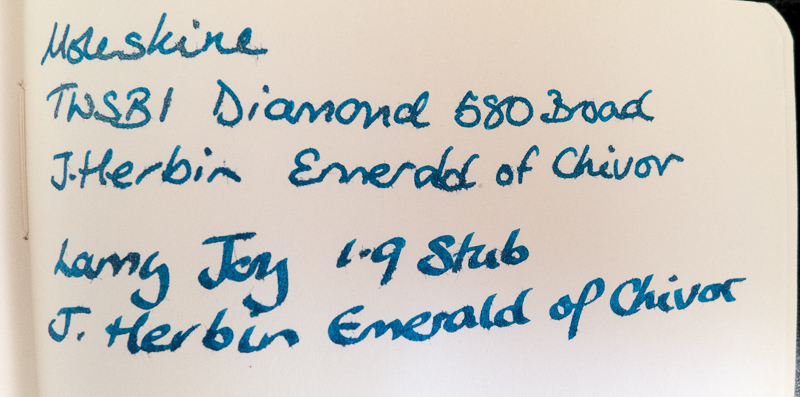 Moleskine
TWSBI Diamond 580 Broad
J.Herbin Emerald of Chivor
Lamy Joy 1.9 Stub
J. Herbin Emerald of Chivor